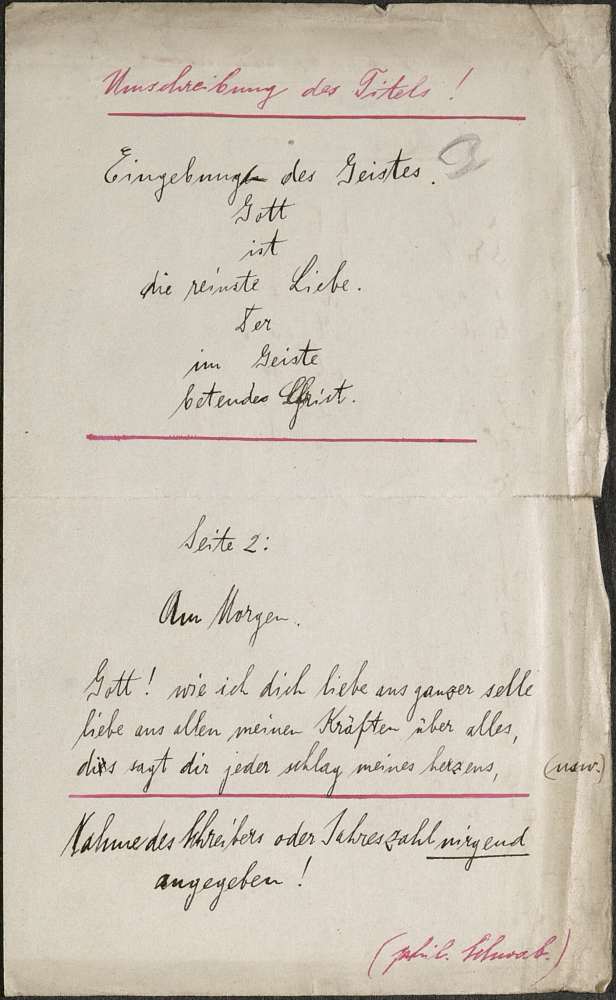 Umschreibung des Titels!
Eingebung des Geistes.
Gott
ist
die reinste Liebe.
Der
im Geiste
betendes Christ.
Seite 2:
Am Morgen.
Gott! wie ich dich liebe aus ganzer selle
liebe aus allen meinen Kräften über alles,
dis sagt dir jeder schlag meines herzens, (usw.)
Nahme des Schreibers oder Jahreszahl nirgend
angegeben!
(phil. Schwab.)